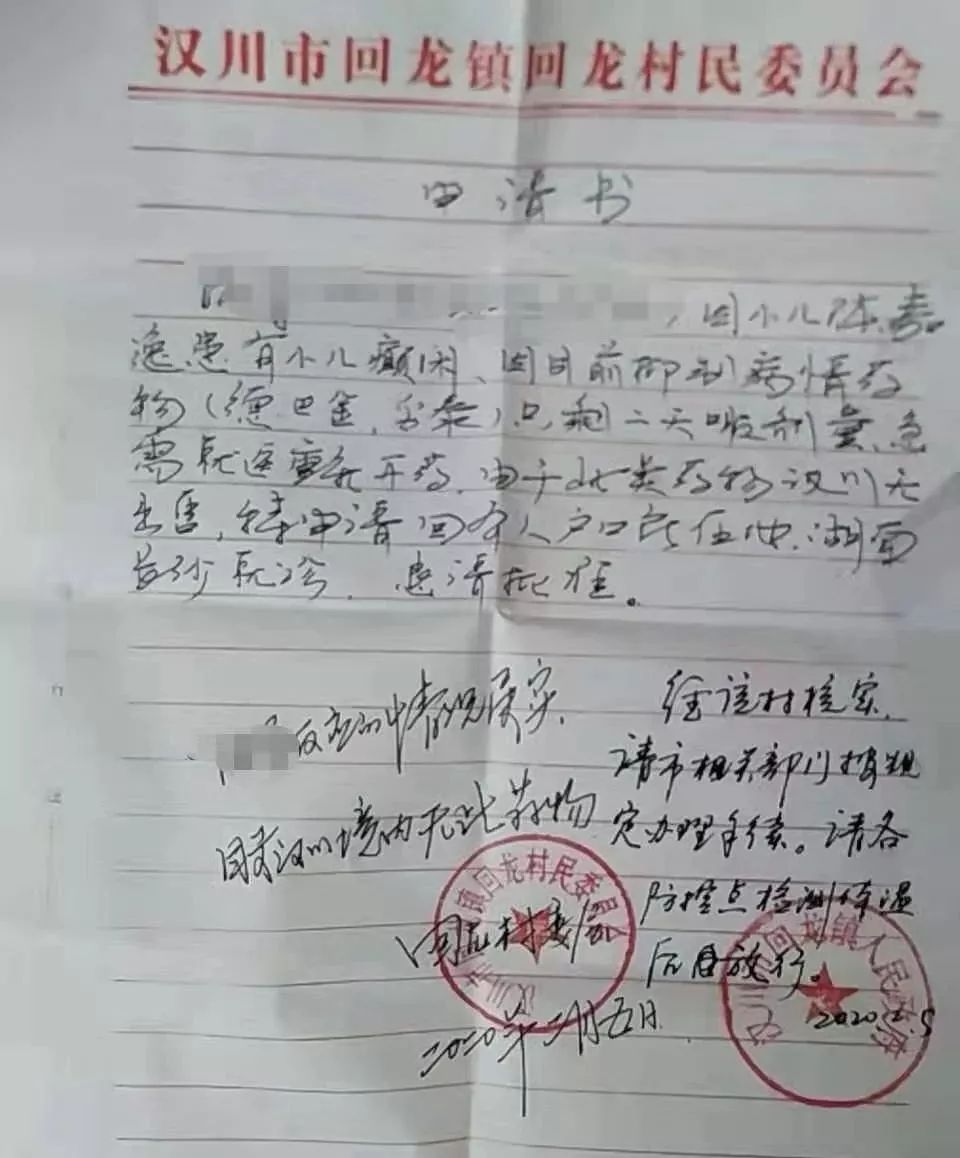 汉川市回龙镇回龙村民委员会
申请书
,因小儿陈嘉
逸患有小儿癫闲、因目前抑制病情药
物(德巴金,)只剩二天吸剂量,急
需就医重新开药,由于此类药物汉川无
出售,特申请回本人户口所在地湖南
长沙就诊,恳请批准。
反应的情况属实,
因我汉川境内无此药物
回龙村委会
二〇二〇年二月五日
经该村核实,
请市相关部门按规
定办理手续。请各
防控点检测体温
后自放行。
2020.2.5
汉川市回龙镇回龙村民委员会
汉川市回龙镇人民政府